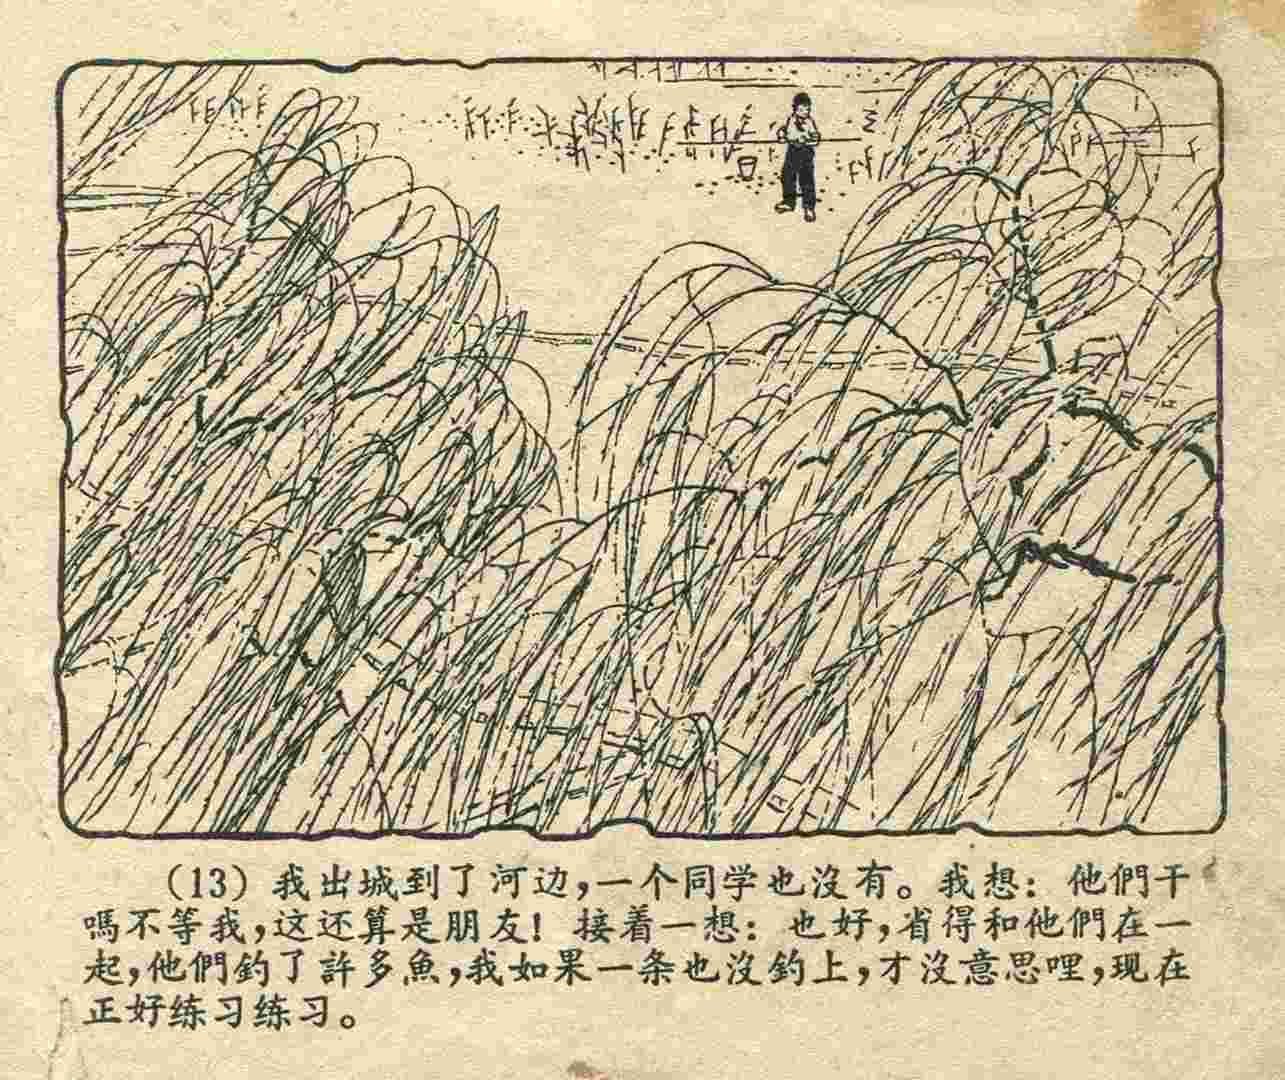 (13) 我出城到了河边，一个同学也沒有。我想：他們干
嗎不等我，这还算是朋友！接着一想：也好，省得和他們在一
起，他們釣了許多魚，我如果一条也沒釣上，才沒意思哩，现在
正好练习练习。